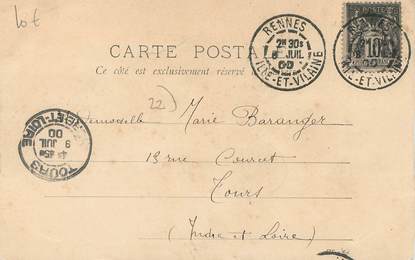 lot
CARTE POSTA
Ce côté est exclusivement réservé
RENNES
2E 30S
8 JUIL
00
ILLE-ET-VILAINE
10
ILLE-ET-VILAINE
22)
Mademoiselle Marie Baranger
13 rue Courcet
Tours
(Indre et Loire)
TOURS
4E 45S
9 JUIL
00
INDRE-ET-LOIRE